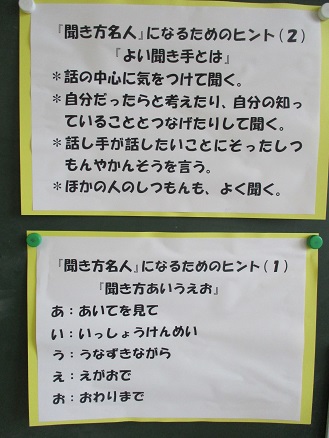 『聞き方名人』になるためのヒント(2)
『よい聞き手とは』
*話の中心に気をつけて聞く。
*自分だったらと考えたり、自分の知っ
ていることとつなげたりして聞く。
*話し手が話したいことにそったしつ
もんやかんそうを言う。
*ほかの人のしつもんも、よく聞く。
『聞き方名人』になるためのヒント(1)
『聞き方あいうえお』
あ:あいてを見て
い:いっしょうけんめい
う:うなずきながら
え:えがおで
お:おわりまで